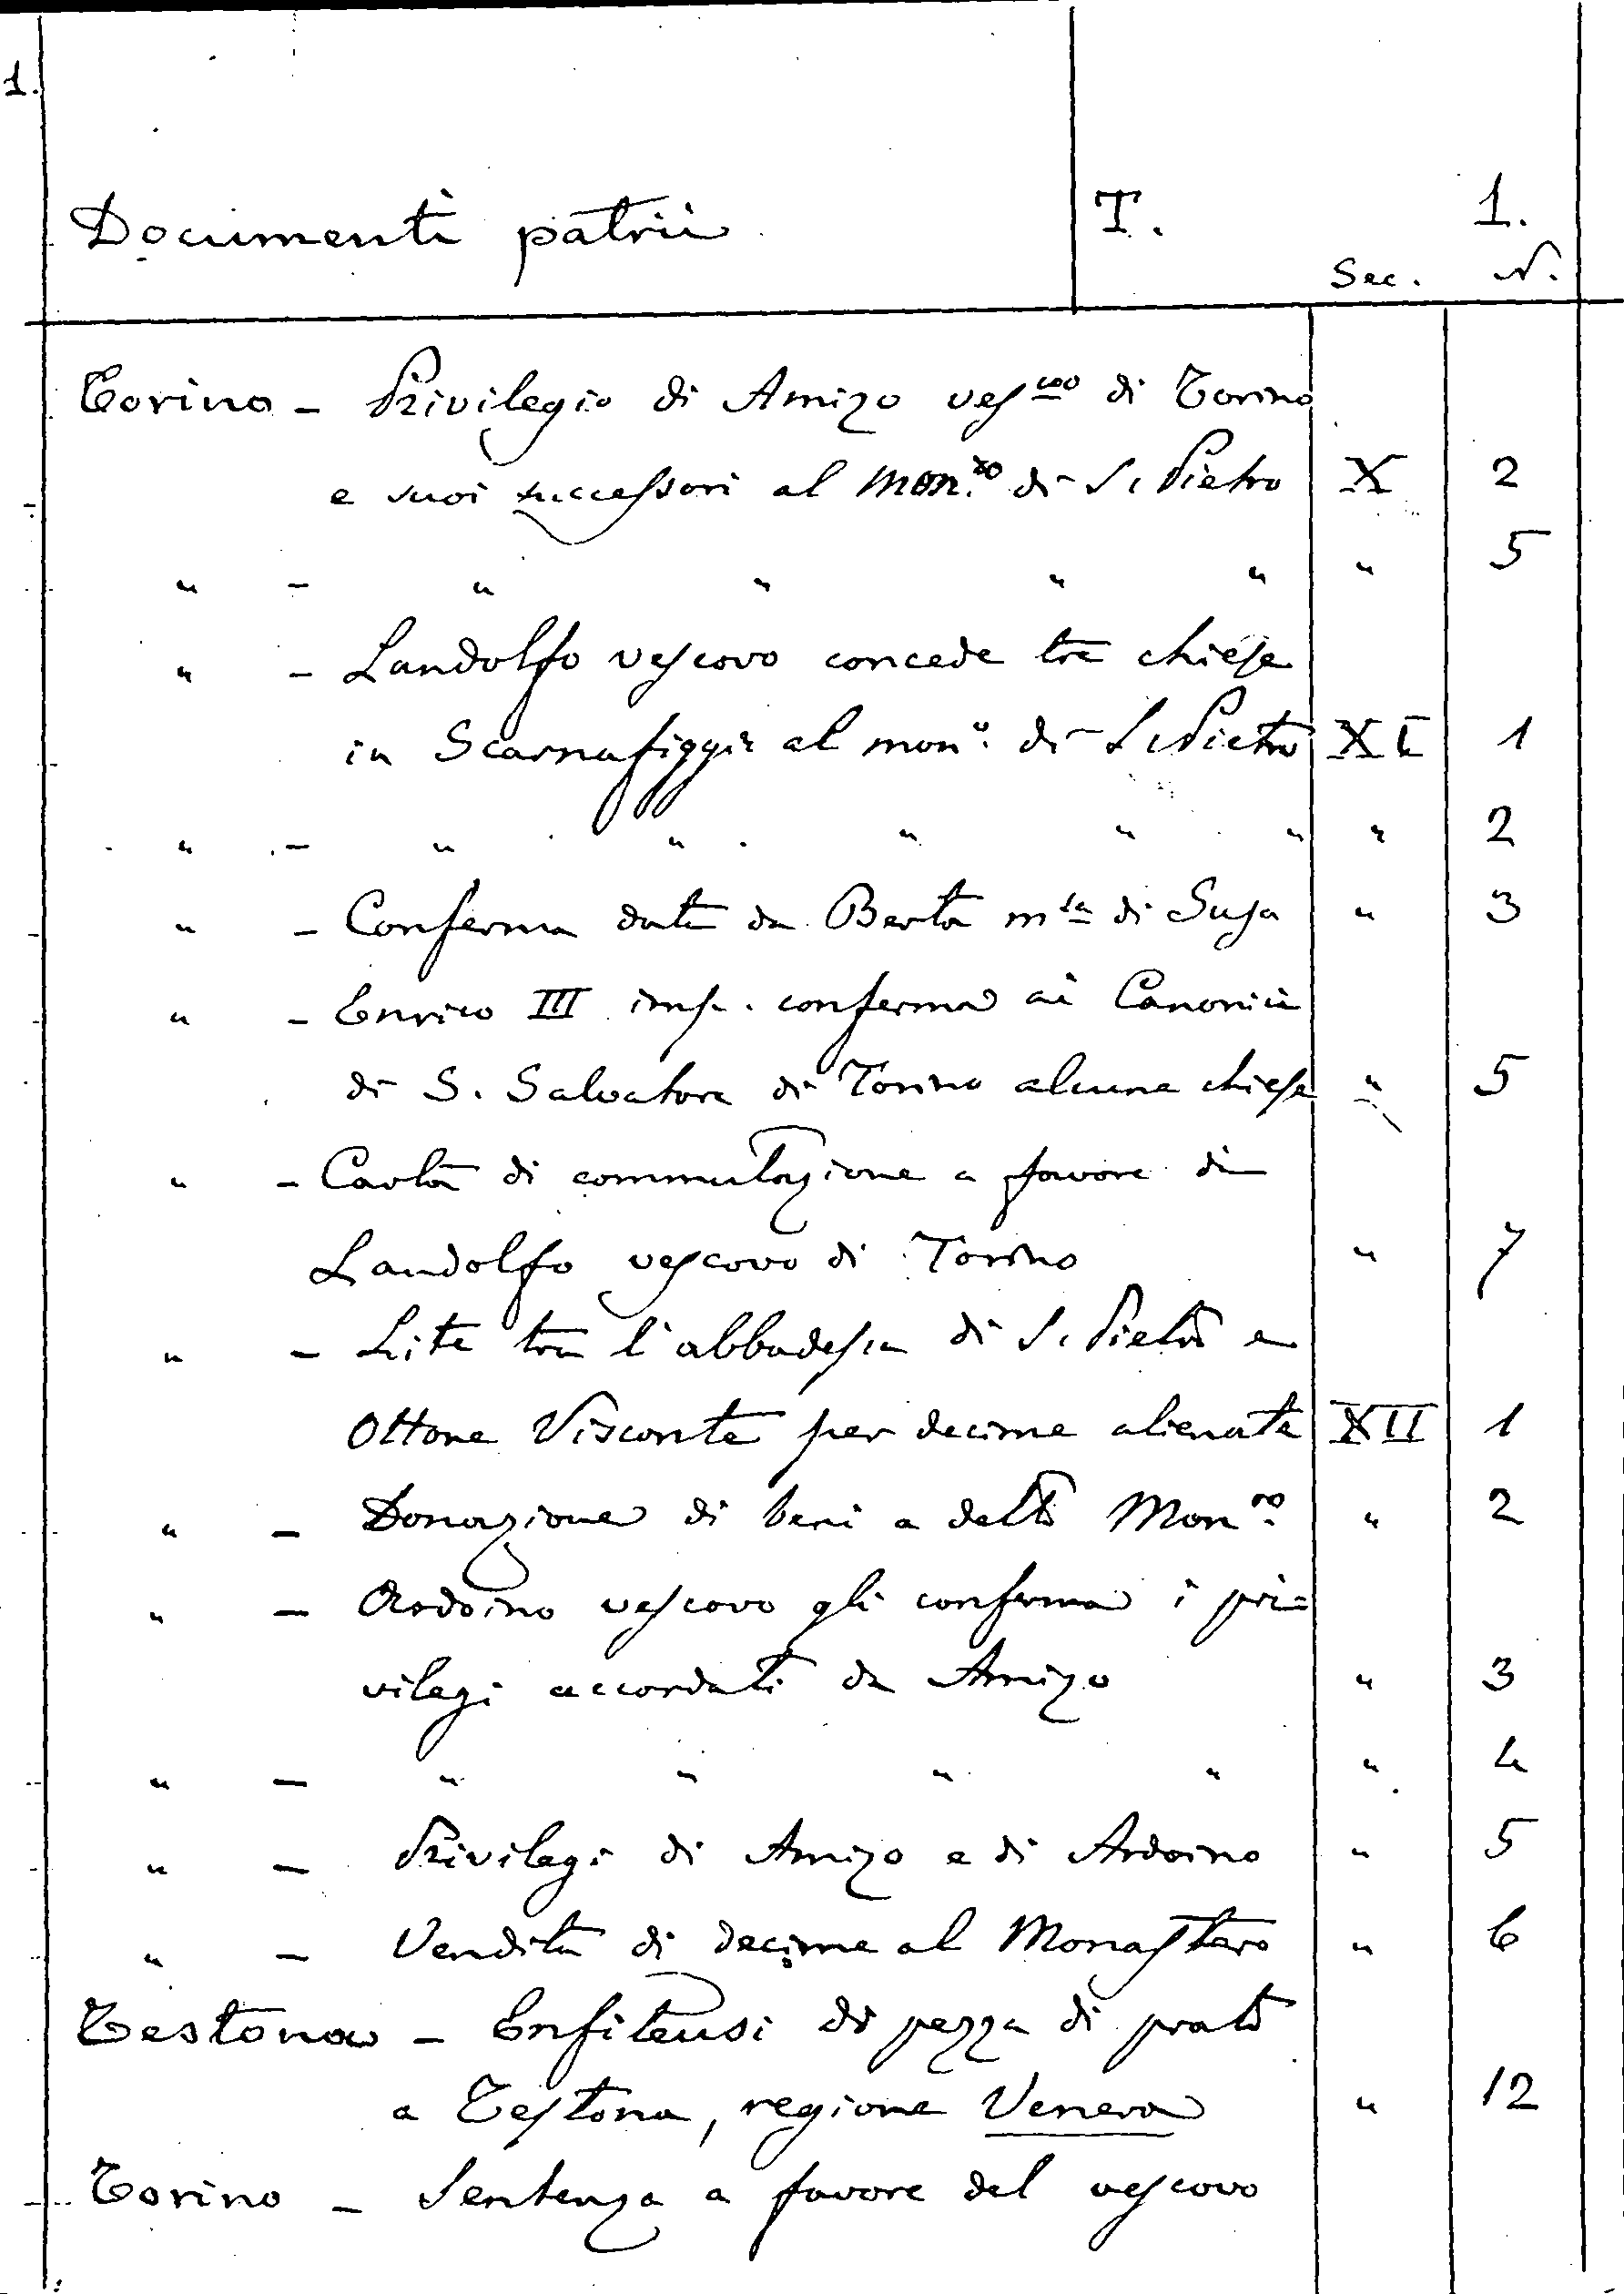 1.
Documenti patrii T. 1.
Sec. N.
Torino - Privilegio di Amizo ves.co di Torino
e suoi successori al Mon.ro di S. Pietro X 2
" - " " " " " 5
" - Landolfo vescovo concede tre chiese
in Scarnafiggi al mon.o di S. Pietro XI 1
" - " " " " " " 2
" - Conferma data da Berta m.sa di Susa " 3
" - Enrico III imp. conferma ai Canonici
di S. Salvatore di Torino alcune chiese " 5
" - Carta di commutazione a favore di
Landolfo vescovo di Torino " 7
" - Lite tra l'abbadessa di S. Pietro e
Ottone Visconte per decime alienate XII 1
" - Donazione di beni a detto Mon.ro " 2
" - Ardoino vescovo gli conferma i pri=
vilegi accordati da Amizo " 3
" - " " " " " 4
" - Privilegi di Amizo e di Ardoino " 5
" - Vendita di decime al Monastero " 6
Testona - Enfiteusi di pezza di prato
a Testona, regione Venera " 12
Torino - Sentenza a favore del vescovo